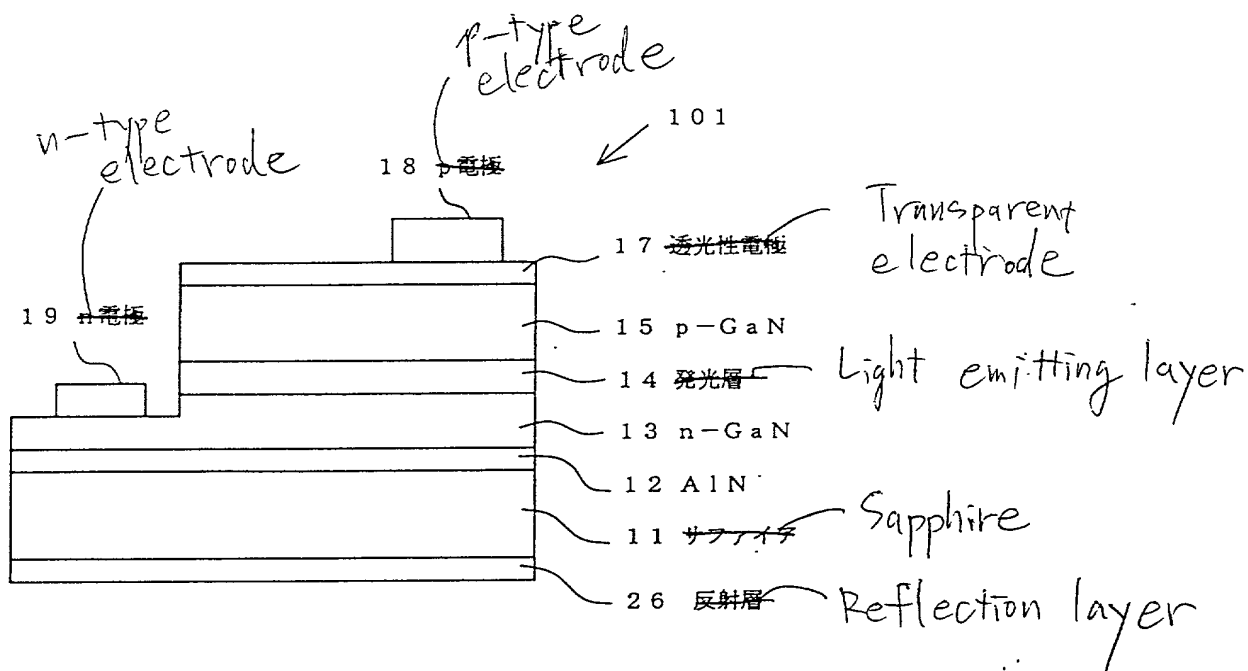 p-type
electrode
n-type
electrode
101
18 p電極
Transparent
electrode
17 透光性電極
19 n電極
15 p-GaN
14 発光層
Light emitting layer
13 n-GaN
12 AlN
11 サファイア
Sapphire
26 反射層
Reflection layer